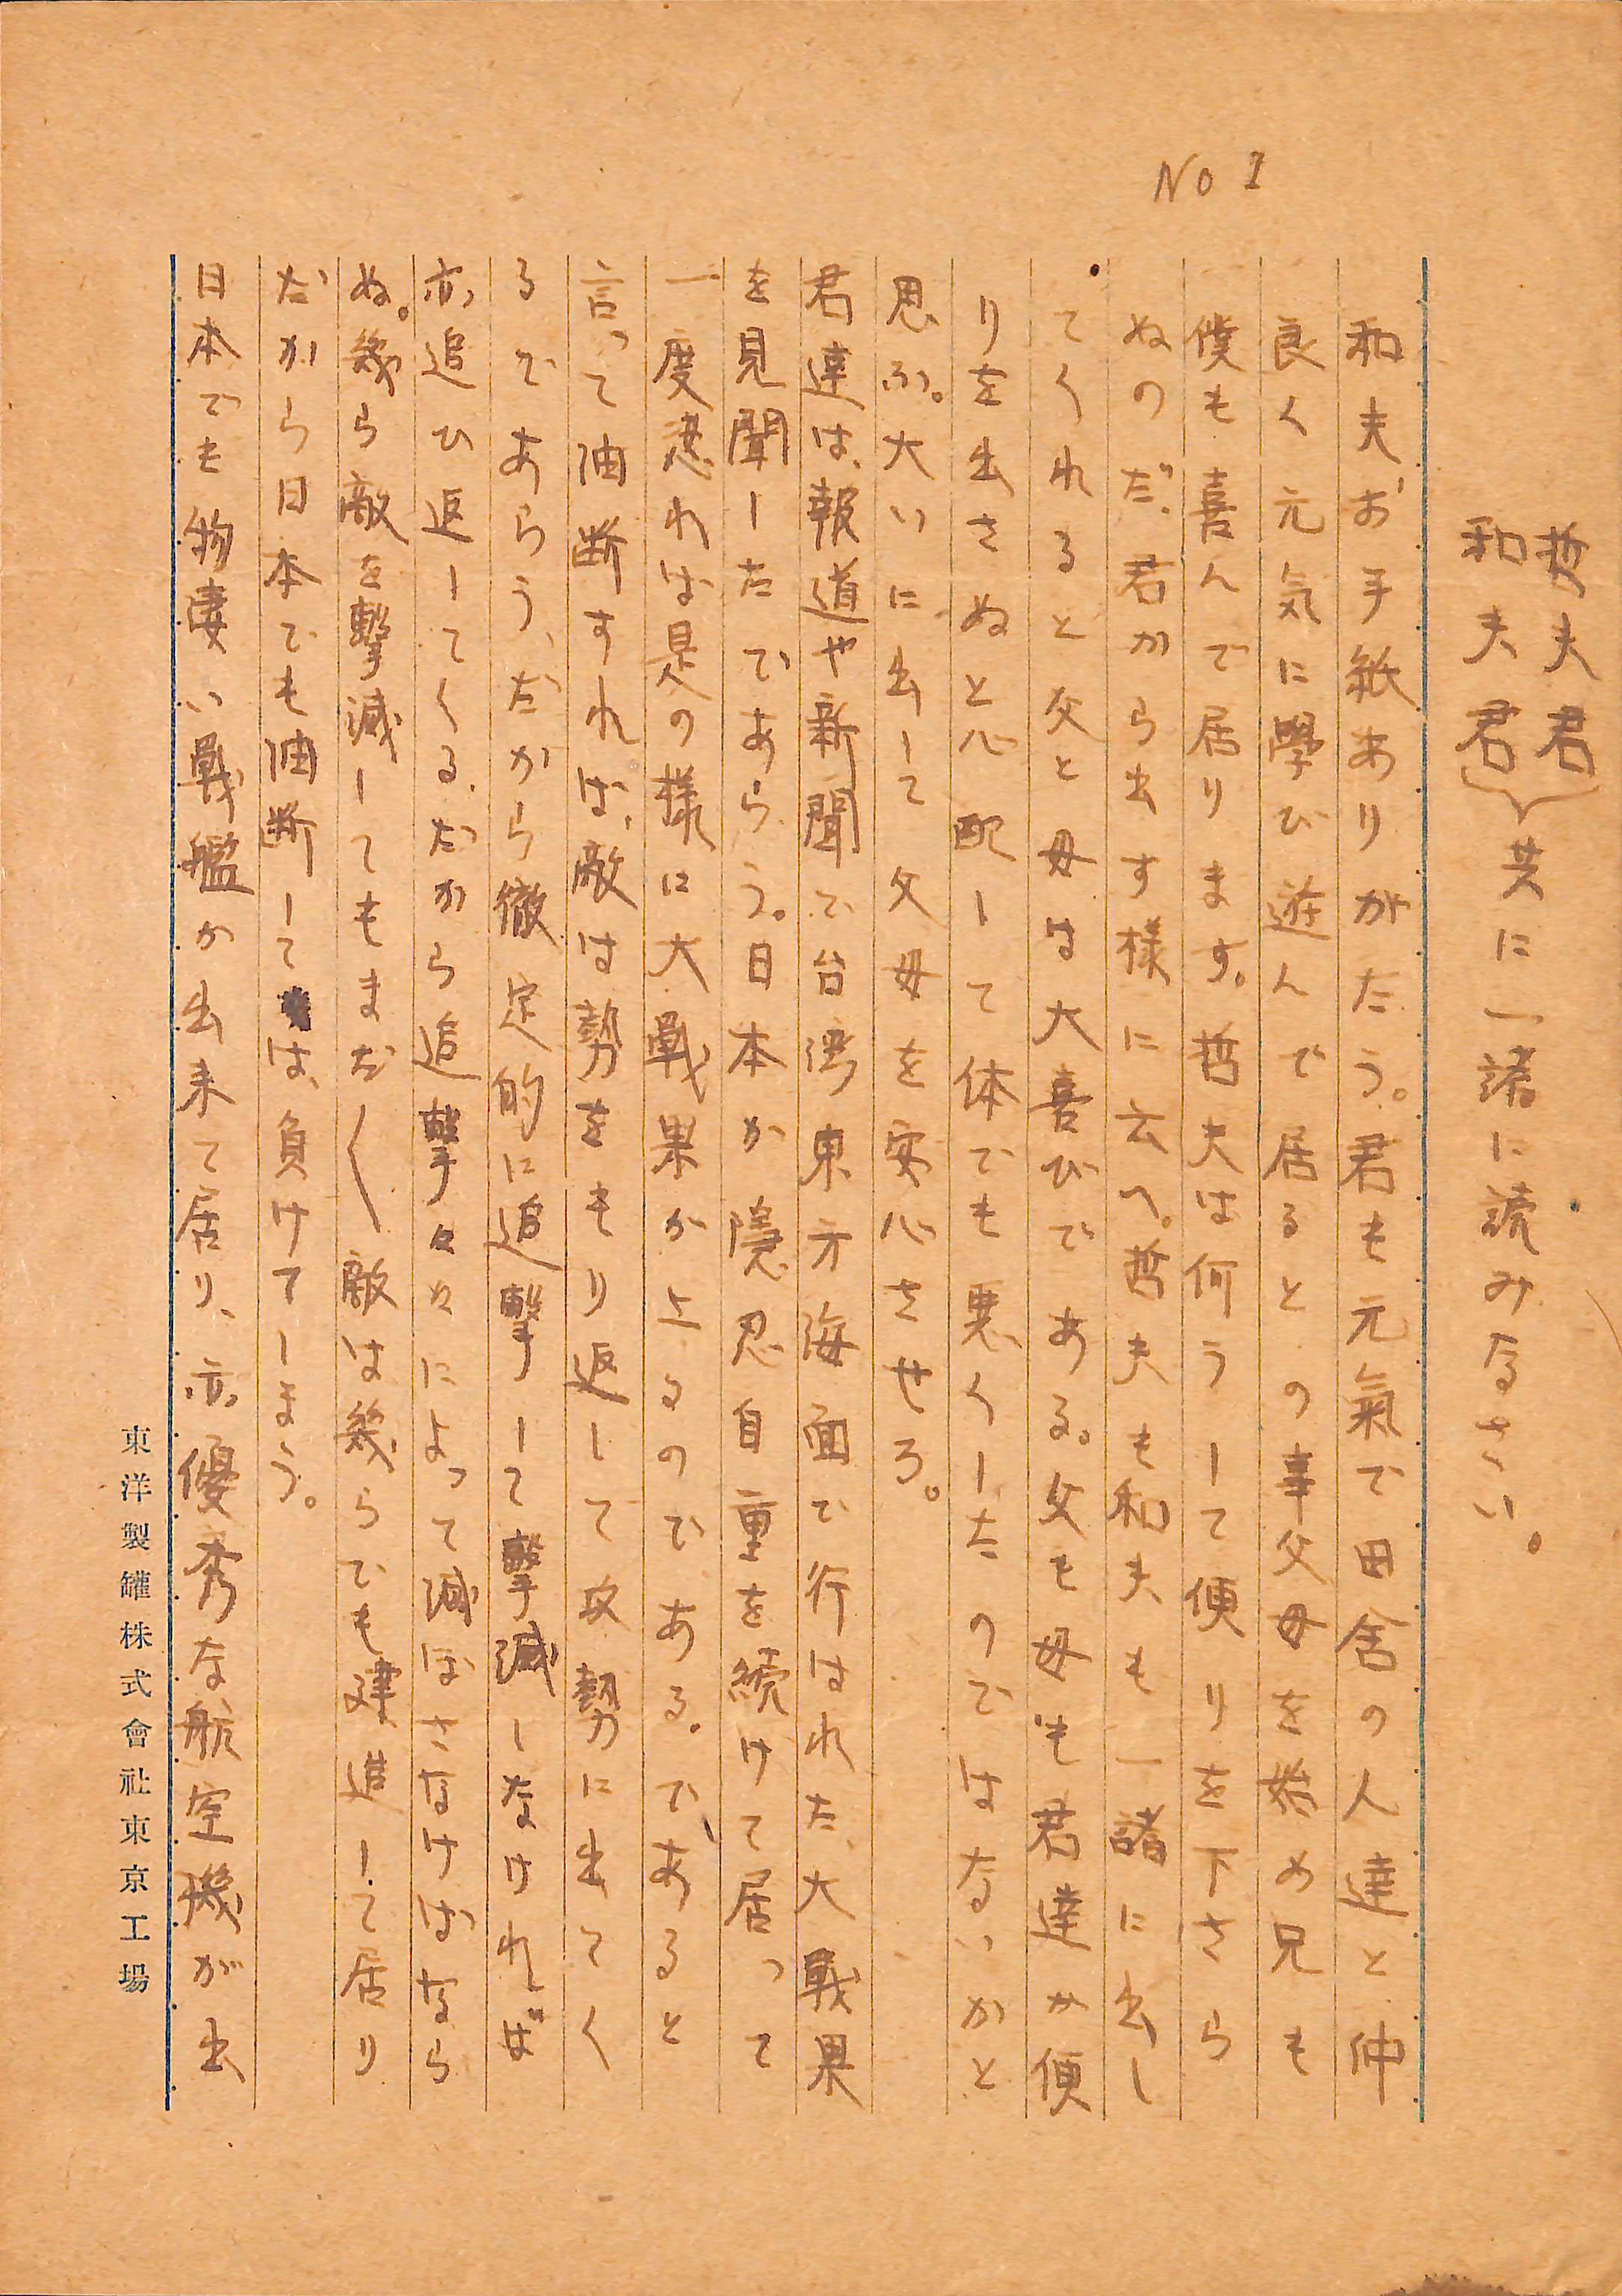 No 1
哲夫君
和夫君
共に一諸に読みなさい。
和夫お手紙ありがたう。君も元氣で田舎の人達と仲
良く元気に學び遊んで居るとの事父母を始め兄も
僕も喜んで居ります。哲夫は何うして便りを下さら
ぬのだ、君から出す様に云へ。哲夫も和夫も一諸に出し
てくれると父と母は大喜びである。父も母も君達か便
りを出さぬと心配して体でも悪くしたのではないかと
思ふ。大いに出して父母を安心させろ。
君達は、報道や新聞で台湾東方海面で行はれた、大戦果
を見聞したであらう。日本か隠忍自重を続けて居って
一度起れは是の様に大戦果か上るのである。で、あると
言って油断すれは、敵は勢をもり返して攻勢に出てく
るであらう、だから徹定的に追撃して撃滅しなければ
亦追ひ返してくる、だから追撃々々によって滅ぼさなけばなら
ぬ。幾ら敵を撃滅してもまだ〱敵は幾らでも建造して居り
だから日本でも油断しては、負けてしまう。
日本でも物凄い戦艦か出来て居り、亦優秀な航空機が出
東洋製罐株式會社東京工場